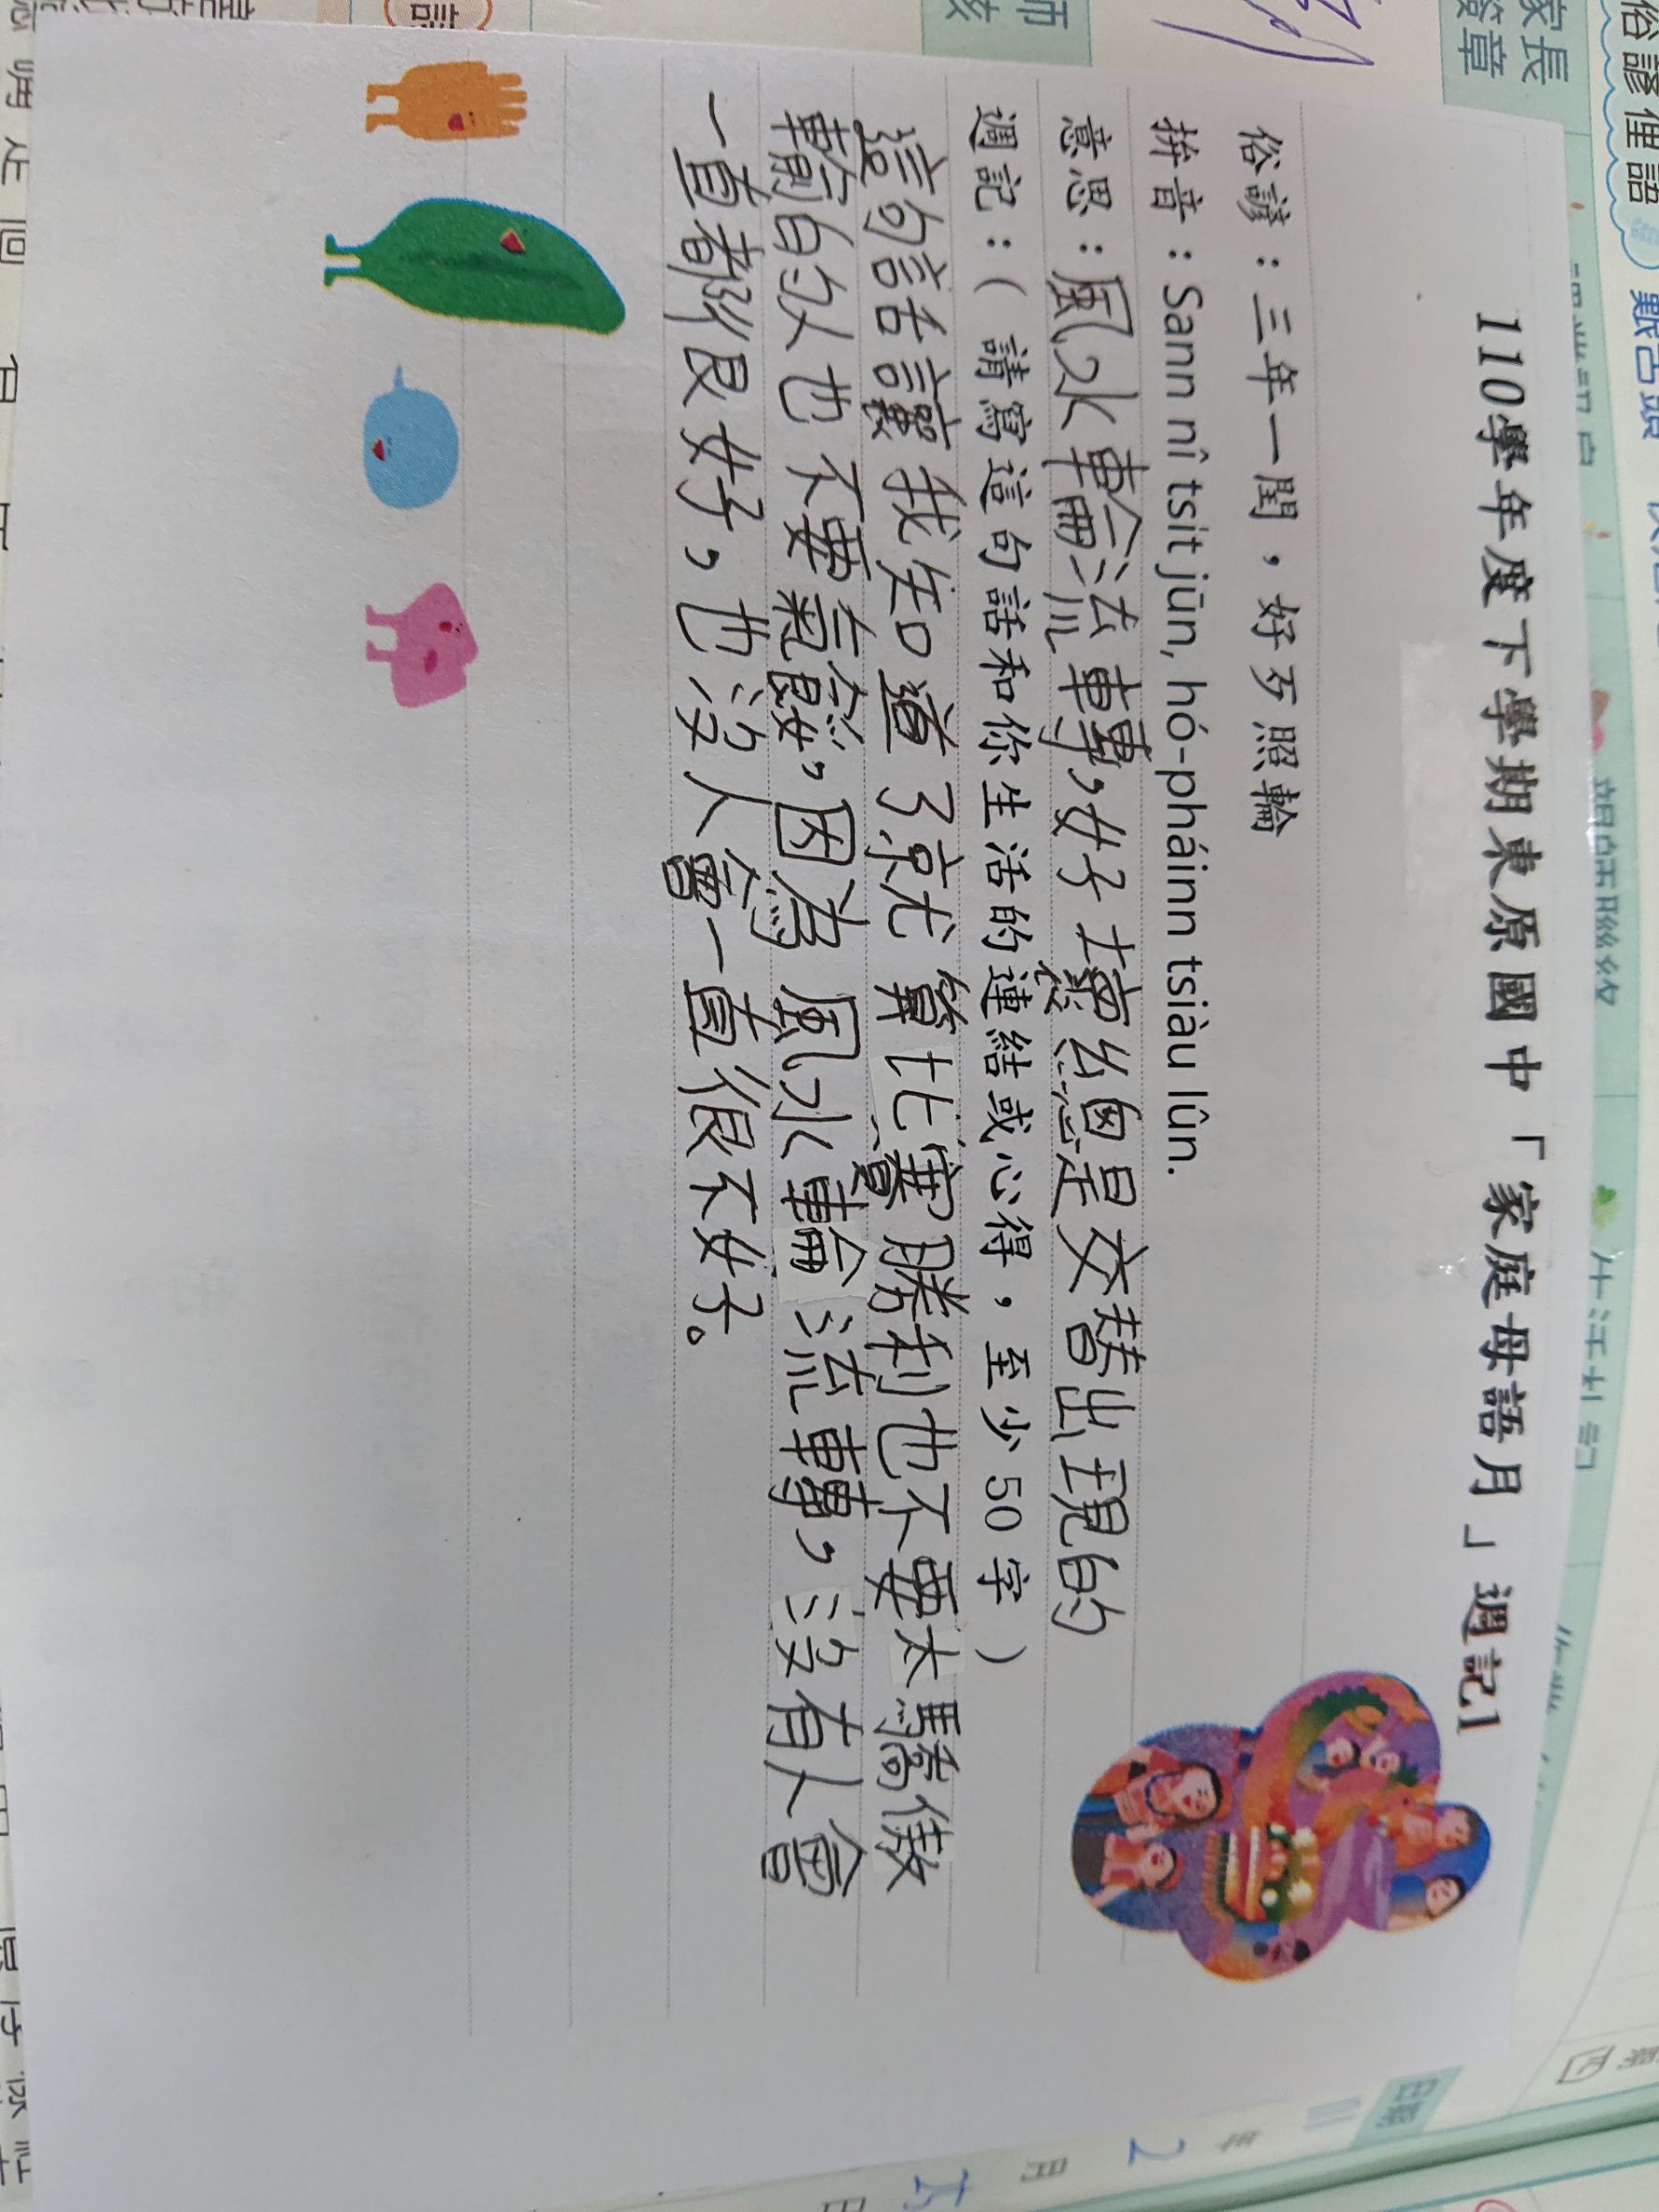 110學年度下學期東原國中「家庭母語月」週記1
俗諺：三年一閏，好歹照輪
拼音：Sann nî tsit jūn, hó-pháinn tsiàu lûn.
意思：風水輪流轉，好壞總是交替出現的
週記：（請寫這句話和你生活的連結或心得，至少50字）
這句話讓我知道了就算比賽勝利也不要太驕傲
輸的人也不要氣餒，因為風水輪流轉，沒有人會
一直都很好，也沒人會一直很不好。
家長
簽章
俗諺俚語
日期
2
月